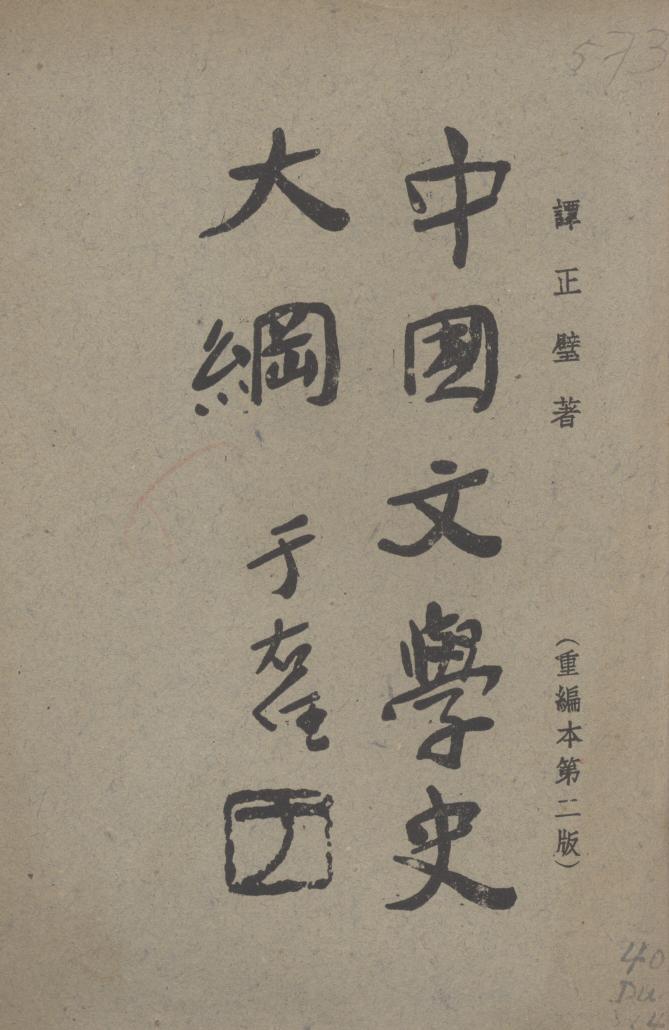 譚正璧著
（重編本第二版）
中國文學史
大綱
于右任
于
573
40
Du